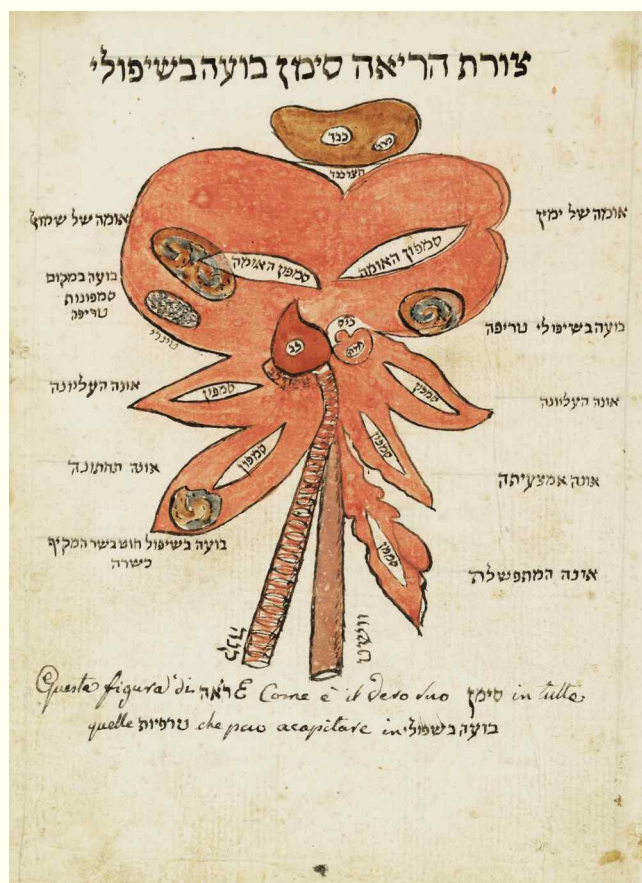 צורת הריאה סימן בועה בשיפולי
כבד
מרה
חצר כבד
אומה של שמאל
אומה של ימין
סמפון האומה
סמפון האומה
בועה במקום
סמפונות
טריפה
בועה בשיפולי טריפה
כיס
לב
אונה העליונה
סמפון
סמפון
אונה העליונה
אונה תחתונה
סמפון
סמפון
אונה אמצעיתה
בועה בשיפול חוט בשר המקיף
כשרה
סמפון
אונה המתפשלה
קנה
וושט
Questa figura di ראה È Come è il Vero suo סימן in tutte
quelle טרפיות che può acapitare in בועה בשפולי